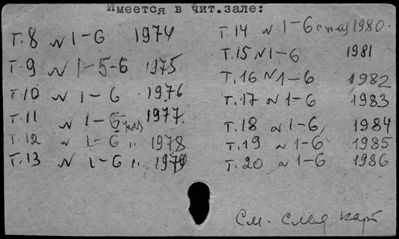 Имеется в чит. зале:
Т.8 N 1-6 1974
Т.9 N 1-5-6 1975
Т.10 N 1-6 1976
Т.11 N 1-6 1977
Т.12 N 1-6 1978
Т.13 N 1-6 1979
Т.14 N 1-6 1980
Т.15 N 1-6 1981
Т.16 N 1-6 1982
Т.17 N 1-6 1983
Т.18 N 1-6, 1984
Т.19 N 1-6 1985
Т.20 N 1-6 1986
См. след карт